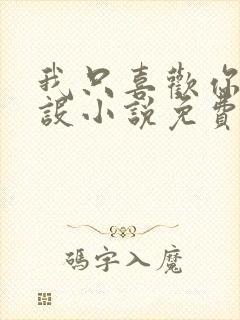 我只喜歡你
設小說免費
碼字入魔